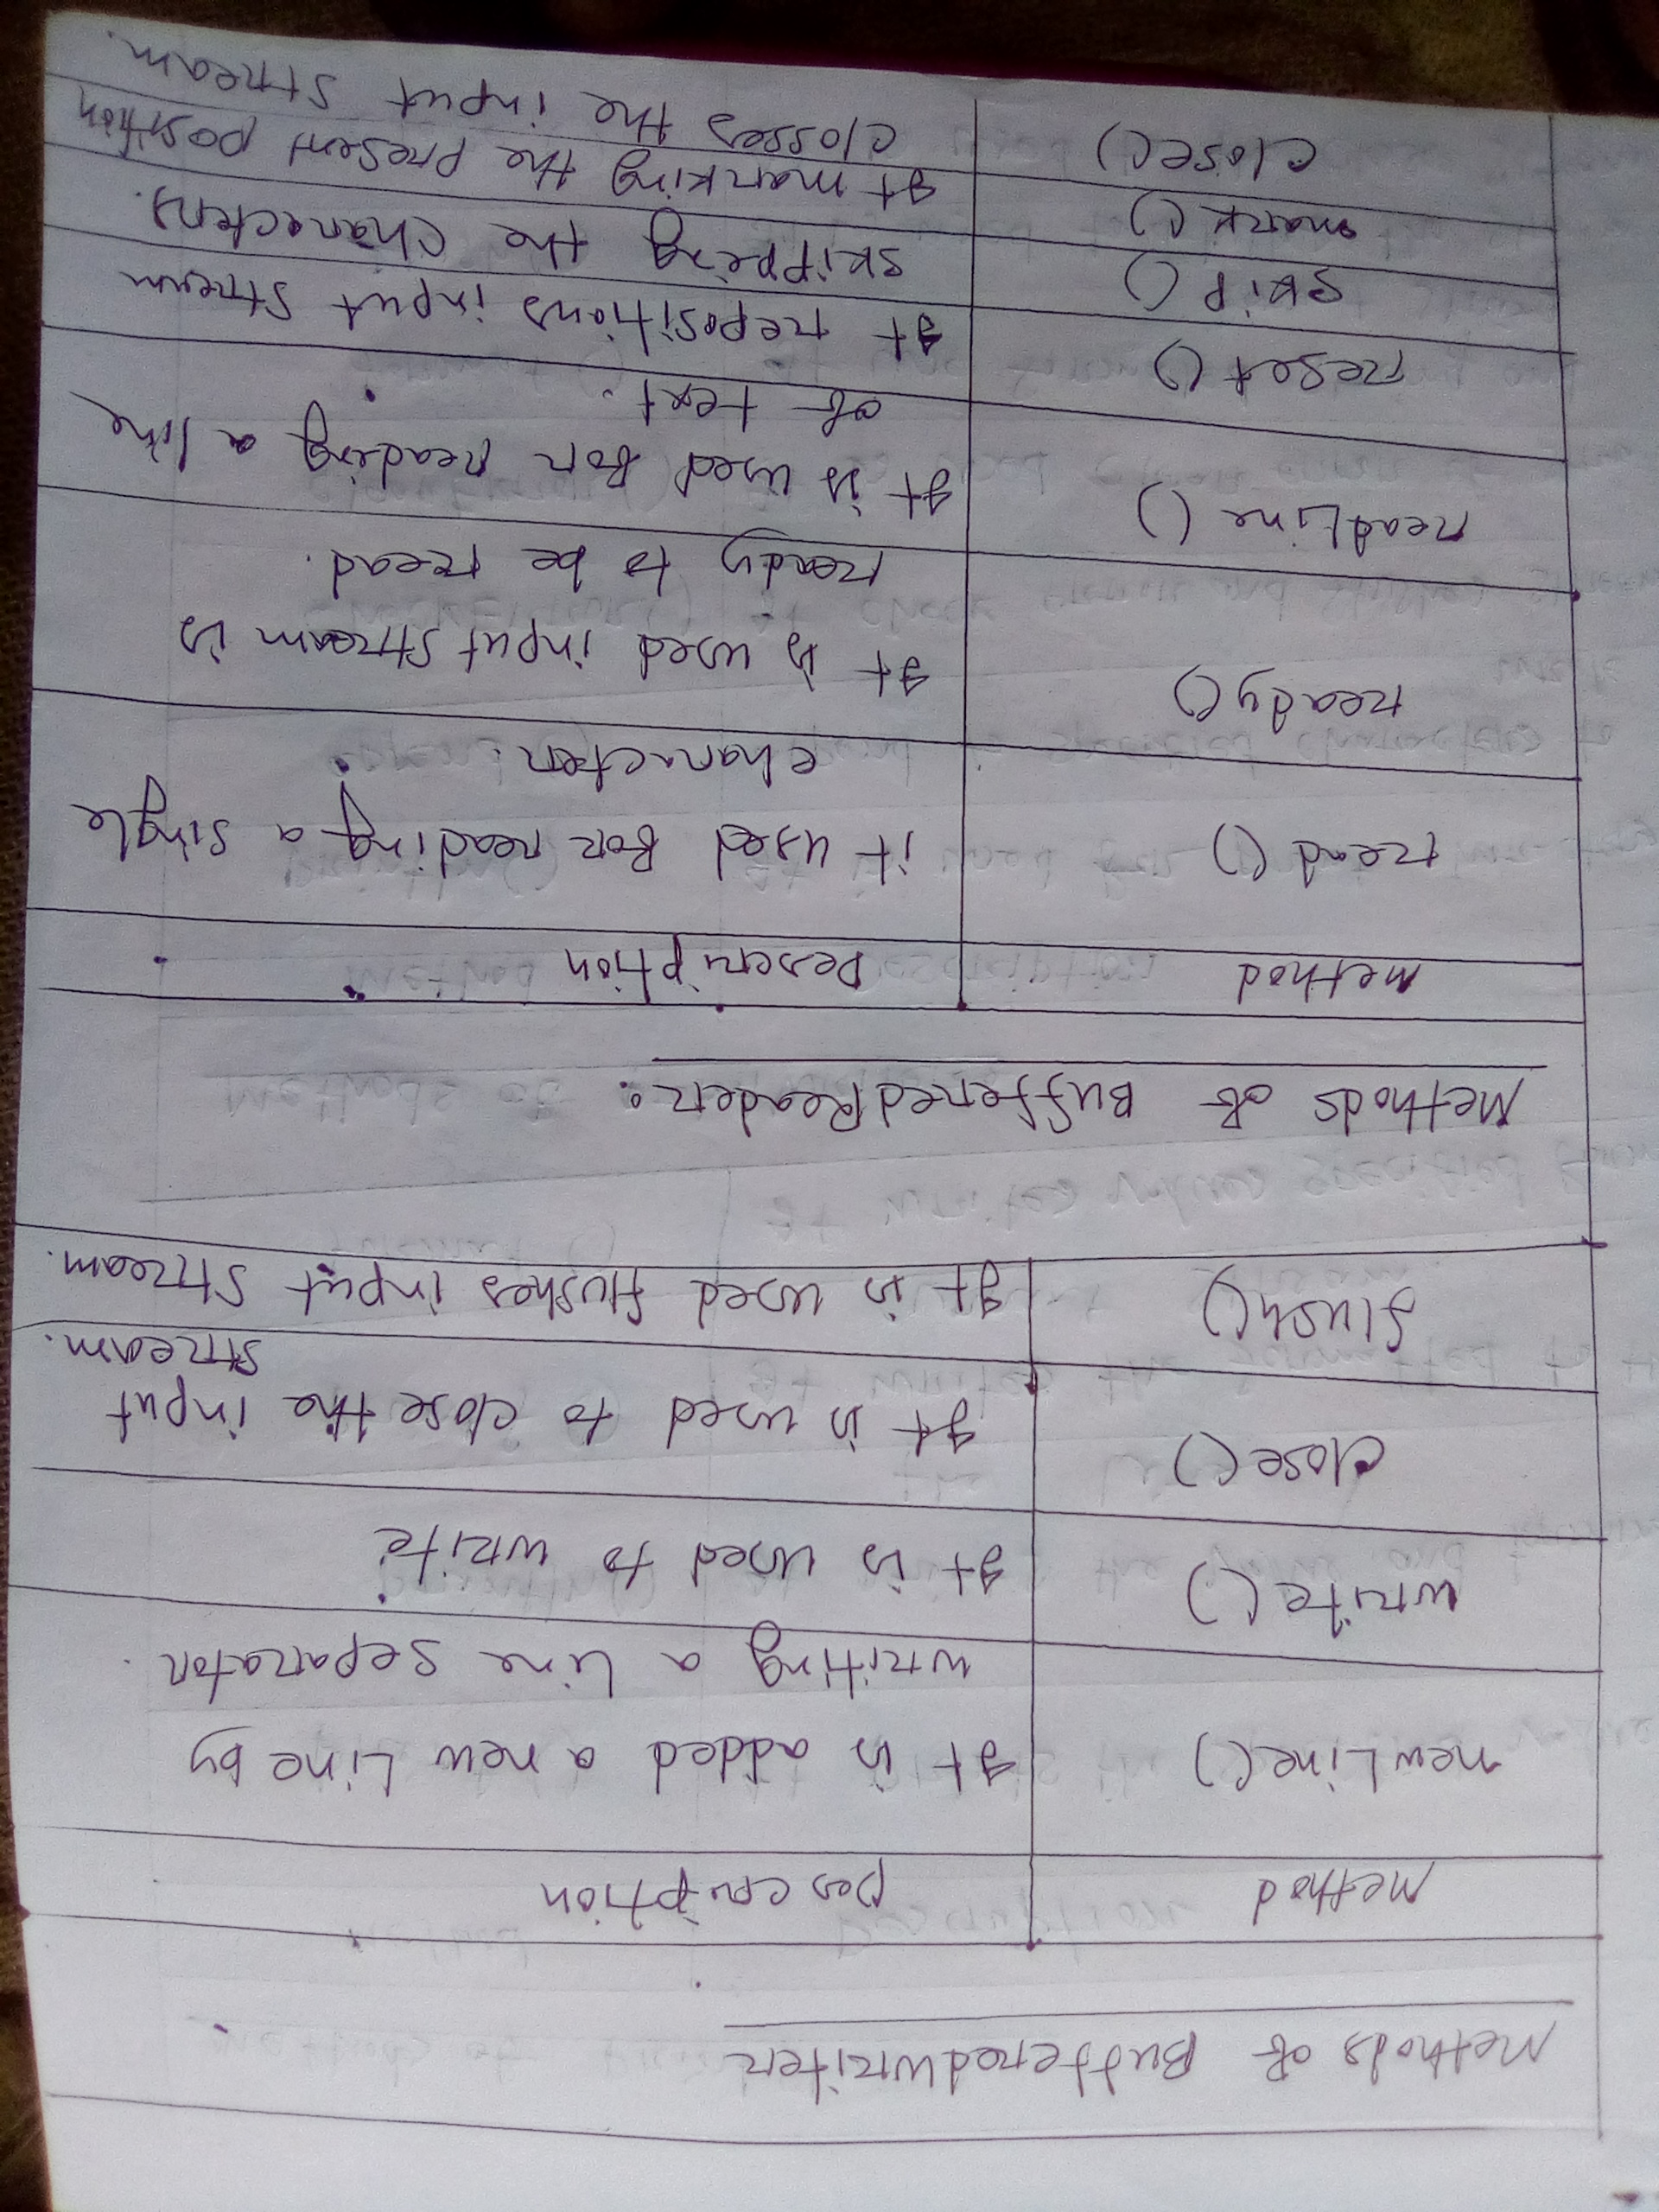 Methods of BufferedWriter
Method Description
newLine() It is added a new Line by
writing a line separator.
write() It is used to write
close() It is used to close the input
stream.
flush() It is used flushes input Stream.
Methods of BufferedReader:
Method Description
read() it used for reading a single
character.
ready() It is used input stream is
ready to be reead.
readLine() It is used for reading a line
of text.
reset() It repositions input Stream
skip() skipping the characters.
mark() It marking the present position
close() closses the input stream.